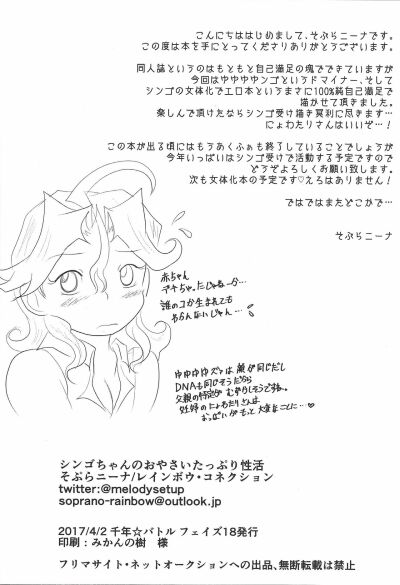 こんにちははじめまして、そぷらニーナです。
この度は本を手にとってくださりありがとうございます。
同人誌というのはもともと自己満足の塊でできていますが
今回はゆゆゆゆンゴというドマイナー、そして
シンゴの女体化でエロ本というまさに100%純自己満足で
描かせて頂きました。
楽しんで頂けたならシンゴ受け描き冥利に尽きます…
にょわたりさんはいいぞ…!
この本が出る頃にはもうあくふぁも終了していることでしょうが
今年いっぱいはシンゴ受けで活動する予定ですので
どうぞよろしくお願い致します。
次も女体化本の予定です♡えろはありません!
ではではまたどこかで…
そぷらニーナ
赤ちゃん
デキちゃったじゃねーか…
誰のコか生まれても
わかんないじゃん…
ゆゆゆゆズは顔が同じだし
DNAも同じそうだから
父親の特定が むずかしそうですね。
妊娠のにょわたりさんは
おっぱいがもっと大変なことに…♡
シンゴちゃんのおやさいたっぷり性活
そぷらニーナ/レインボウ・コネクション
twitter:@melodysetup
soprano-rainbow@outlook.jp
2017/4/2 千年☆バトル フェイズ18発行
印刷:みかんの樹 様
フリマサイト・ネットオークションへの出品、無断転載は禁止